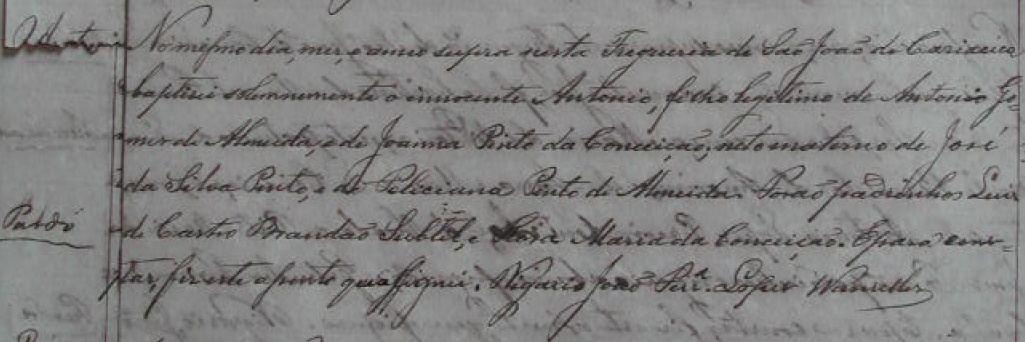 Antonio No mesmo dia, mez, e anno supra nesta Freguezia de São João de Cariacica
baptisei solemnemente o innocente Antonio, filho legitimo de Antonio Go-
mes de Almeida, e de Joanna Pinto da Conceição, neto materno de José
da Silva Pinto, e de Feliciana Pinto de Almeida. Forão padrinhos Luis
Pardo de Castro Brandão Subtil, e Maria da Conceição. E para cons-
tar, fiz este assento que assignei. Vigario João Ferr.ª Lopes